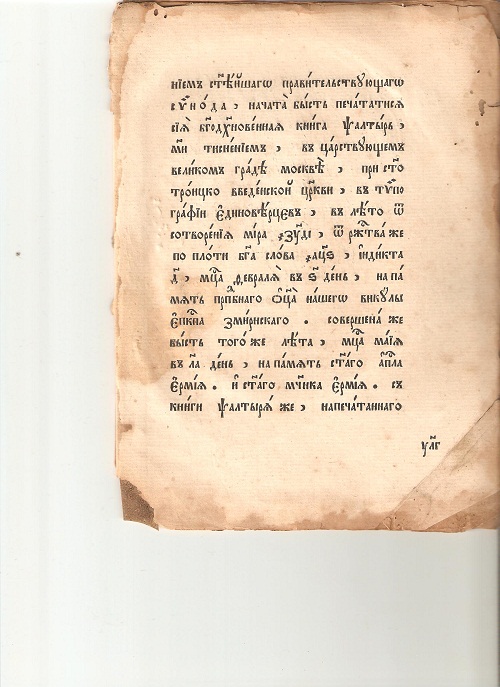 нїемъ ст҃ѣ́йшагѡ правительствующагѡ
сѷно́да, начата̀ бысть печа́татисѧ
сїѧ̀ бг҃одꙋхнове́ннаѧ книга ѱалты́рь,
тисне́нїемъ, въ царствꙋющемъ
вели́комъ гра́дѣ москвѣ̀, при ст҃о
трои́цко введе́нской цр҃кви, въ тѷпо
гра́фїи є҆диновѣ́рцєвъ, въ лѣ́то ѿ
сотворе́нїѧ мі́ра, ѿ рж҃тва́ же
по пло́ти бг҃а сло́ва, і҆ндікта
д҃, мц҃а феврали́ѧ въ ѕ҃ де́нь, на па́
мѧть прпⷣбнаго ѻ҆ц҃а̀ на́шегѡ викулы
є҆пⷭ҇кпа змѵ́рнскаго. соверше́на же
бы́сть того́же лѣ́та, мц҃а ма́їѧ
въ л҃а де́нь, на па́мѧть ст҃а́го а҆пⷭ҇ла
є҆рмі́ѧ. и҆ ст҃а́го мч҃нка є҆рмі́ѧ. съ
кни́ги ѱалты́рѧ же, напеча́таннаго
ѱл҃г